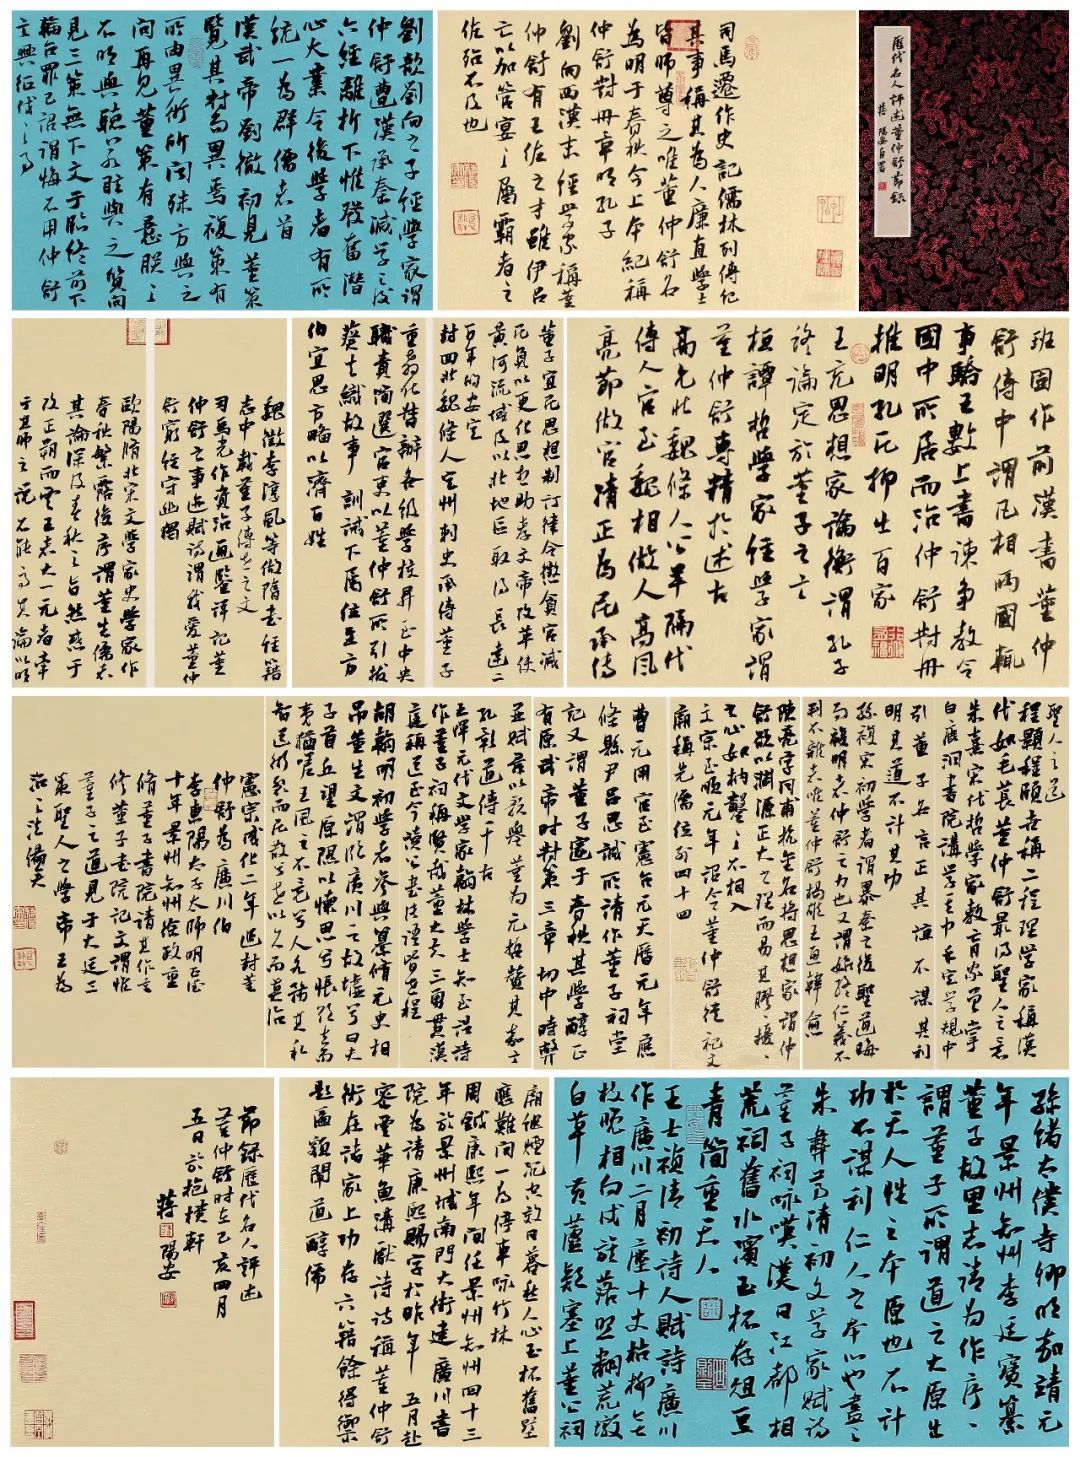 歷代名人評述董仲舒節錄
蔣陽安自署
司馬遷作史記儒林列傳記
其事稱其為人廉直學士
皆師尊之唯董仲舒名
為明于春秋今上本紀稱
仲舒對冊章明孔子
劉向西漢末經學家稱董
仲舒有王佐之才雖伊呂
亡以加管宴之屬霸者之
佐殆不及也
劉歆劉向之子經學家謂
仲舒遭漢承秦滅學之後
六經離析下惟發奮潛
心大業令後學者有所
統一為群儒者首
漢武帝劉徹初見董策
覽其對而異焉複策有
所由異術所聞殊方與之
問再見董策有意朕之
不明與聽若眩與之質問
見三策無下文于臨終前下
輪台罪己詔謂悔不用仲舒
言興征伐之事
班固作前漢書董仲
舒傳中謂凡相兩國輒
事驕王數上書諫爭教令
國中所居而治仲舒對冊
推明孔氏抑出百家
王充思想家論衡謂孔子
終論定於董子之言
桓譚哲學家經學家謂
董仲舒專精於述古
高允北魏條人公羊隔代
傳人官至魏相做人高風
亮節做官清正為民承傳
董子宜民思想制訂律令懲貪官減
民負以更化思想助孝文帝改革使
黃河流域及以北地區取得長達二
百年的安定
封回北魏條人定州刺史承傳董子
重教化替辦各級學校昇至中央
職責簡選官吏以董仲舒所引拔
葵去織故事訓誡下屬位至方
伯宜思方略以濟百姓
魏徵李淳風等做隋書經籍
志中載董子傳世之文
司馬光作資治通鑒詳記董
仲舒之事迹賦詩謂我愛董仲
舒窮經守幽獨
歐陽脩北宋文學家史學家作
春秋繁露後序謂董生儒者
其論深及春秋之旨然惑于
改正朔而雲王者大一元者牽
于其師之說不能高其論以明
聖人之道
程顥程頤世稱二程理學家稱漢
代如毛萇董仲舒最得聖人之意
朱熹宋代哲學家教育家曾掌
白鹿洞書院講學其中手定學規中
引董子名言正其誼不謀其利
明其道不計其功
孫複宋初學者謂暴秦之後聖道晦
而複明者仲舒之力也又謂始終仁義不
叛不雜者唯董仲舒揚雄王通韓愈
陳亮字同甫抗金名將思想家謂仲
舒欲以淵源正大之理而易其膠膠擾擾
之心如枘鑿之不相入
文宗至順元年詔令董仲舒從祀文
廟稱先儒位列四十四
曹元用官至憲台元天曆元年應
條縣尹呂思誠所請作董子祠堂
記又謂董子邃于春秋其學醇正
有原武帝時對策三章切中時弊
並賦言以頌譽董為元哲贊其嘉言
孔彰道傳千古
王惲元代文學家翰林學士知至誥詩
作董子祠稱賢哉董大夫三勇貫漢
庭稱足正今讀公書法語皆世程
胡翰明初學者參與纂脩元史相
吊董生文謂臨廣川之故墟兮曰夫
子首丘望原隰以懷思兮悵
夷猶嗟王風之不克兮人各務其私
智道術裂而民散兮世以久而莫治
憲宗成化二年追封董
仲舒為廣川伯
李東陽太子太師明正德
十年景州知州徐政重
脩董子書院請其作重
修董子書院記文謂惟
董子之道見于大廷三
策聖人之學帝王為
治之法備矣
孫緒太僕寺卿明嘉靖元
年景州知州李廷寶纂
董子故里志請為作序
謂董子所謂道之大原出
於天人性之本原也不計
功不謀利仁人之本心也盡之
朱彝尊清初文學家賦詩
董子祠咏嘆漢日江都相
荒祠舊水濱玉杯存俎豆
青簡重天人
王士禎清初詩人賦詩廣川
作廣川二月塵十丈枯柳七
枚晚相向戍註落照翻荒墩
白草黃蘆疑塞上董公祠
廟但煙沉
應難問一為停車咏竹林
周鉞康熙年間任景州知州四十三
年於景州城南門大街建廣川書
院為請康熙賜字於昨年五月赴
密雲華魚溝獻詩詩稱董仲舒
術在諸家上功存六籍餘得禦
題匾額闡道醇儒
節錄歷代名人評述
董仲舒時在己亥四月
五日於抱樸軒
蔣陽安